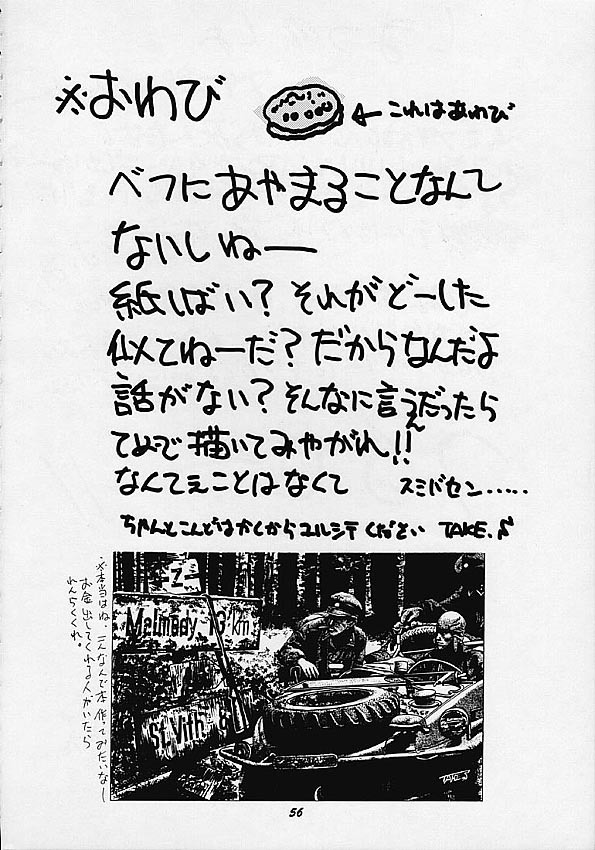 ※おわび
←これはあわび
べつにあやまることなんて
ないしねー
紙しばい？それがどーした
似てねーだ？だからなんだよ
話がない？そんなに言うんだったら
てめーで描いてみやがれ!!
なんてぇことはなくて スミバセン……
ちゃんとこんどはかくからユルシテください TAKE.♪
※本当はね、こんなんで本作ってみたいなー
お金出してくれる人がいたら
れんらくくれ。
Z
Malmedy 13 km
St. Vith 8
TAKE.♪
56